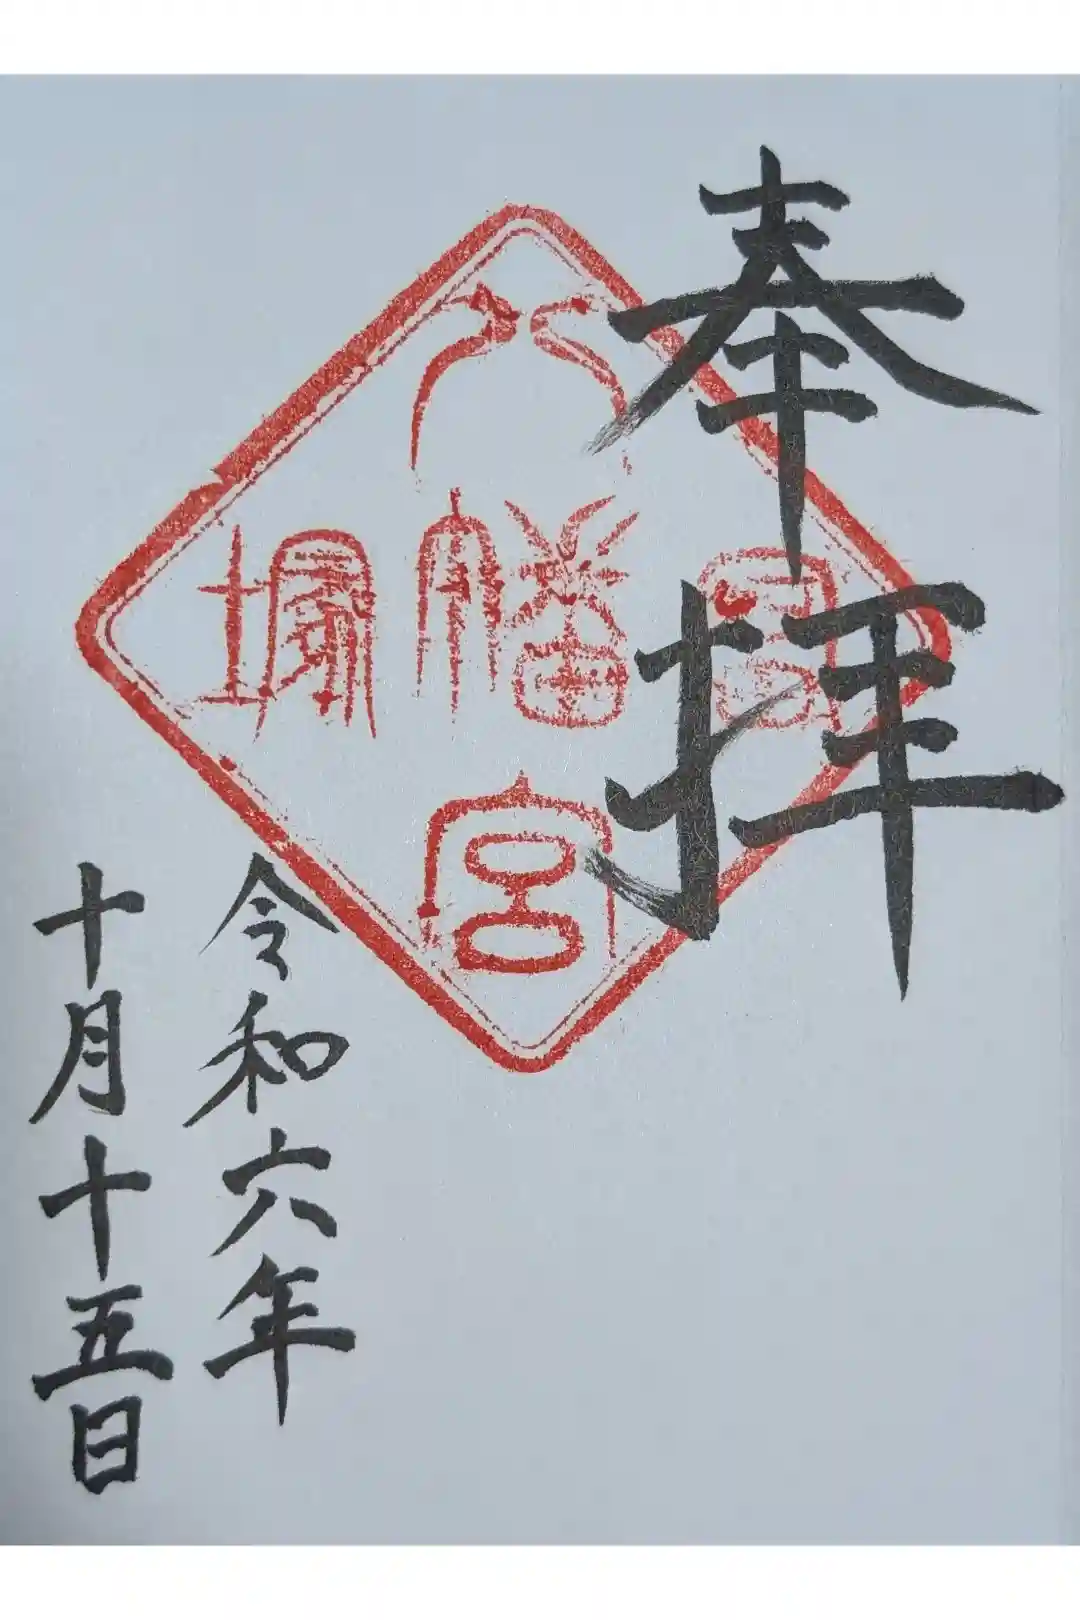 奉拝
八幡宮
令和六年
十月十五日